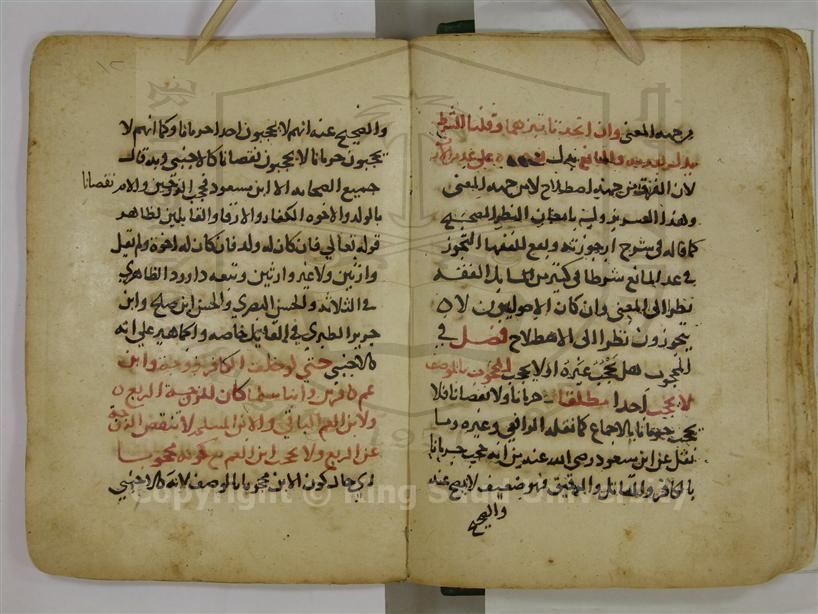 من جهة المعنى وان اتحدتا تبرهما وقلنا الشرط
لان الفرق من جهة اصطلاح لا من جهة المعنى
وهذا الصريف ولية باعتبار النظر الصحيح
كما قاله في شرح ارجوزته ووقع للفقها التجوز
في عد المانع شروطا في كثير من مسايل الفقه
نظرا الى المعنى وان كان الاصوليون لا
يتجوزون نظرا الى الاصطلاح فصل في
المحجوب هل يحجب غيره او لا يحجب المحجوب بالوصف
لا يحجب احدا مطلقا حرمانا ولا نقصانا فلا
يحجب حرمانا بالاجماع كما نقله الرافعي وغيره وما
نقل عن ابن مسعود رضي الله عنه من انه يحجب حرمانا
بالكافر والقاتل والرقيق فهو ضعيف لا يصح عنه
والصحيح
والصحيح عنه انهم لا يحجبون احدا حرمانا وكما انهم لا
يحجبون حرمانا لا يحجبون نقصانا كالاجنبي وبه قال
جميع الصحابة الا ابن مسعود فحجب الزوجين والام نقصانا
بالولد والاخوة الكفار والارقا والقاتلين لظاهر
قوله تعالى فان كان له ولد فان كان له اخوة ولم يقل
وارثين ولا غير وارثين وتبعه داوود الظاهري
في الثلاثة والحسن البصري والحسن ابن صالح وابن
جرير الطبري في القاتل خاصة والجماهير على انه
كالاجنبي حتى لو خلف الكافر زوجة وابن
عم كافرين وابنا مسلما كان للزوجة الربع
ولابن العم الباقي والابن المسلم لا ينقص الزوجة
عن الربع ولا يحجب ابن العم مع كونه محجوبا
اي حال كون الابن محجوبا بالوصف لانه كالاجنبي
Copyright © King Saud University
1957